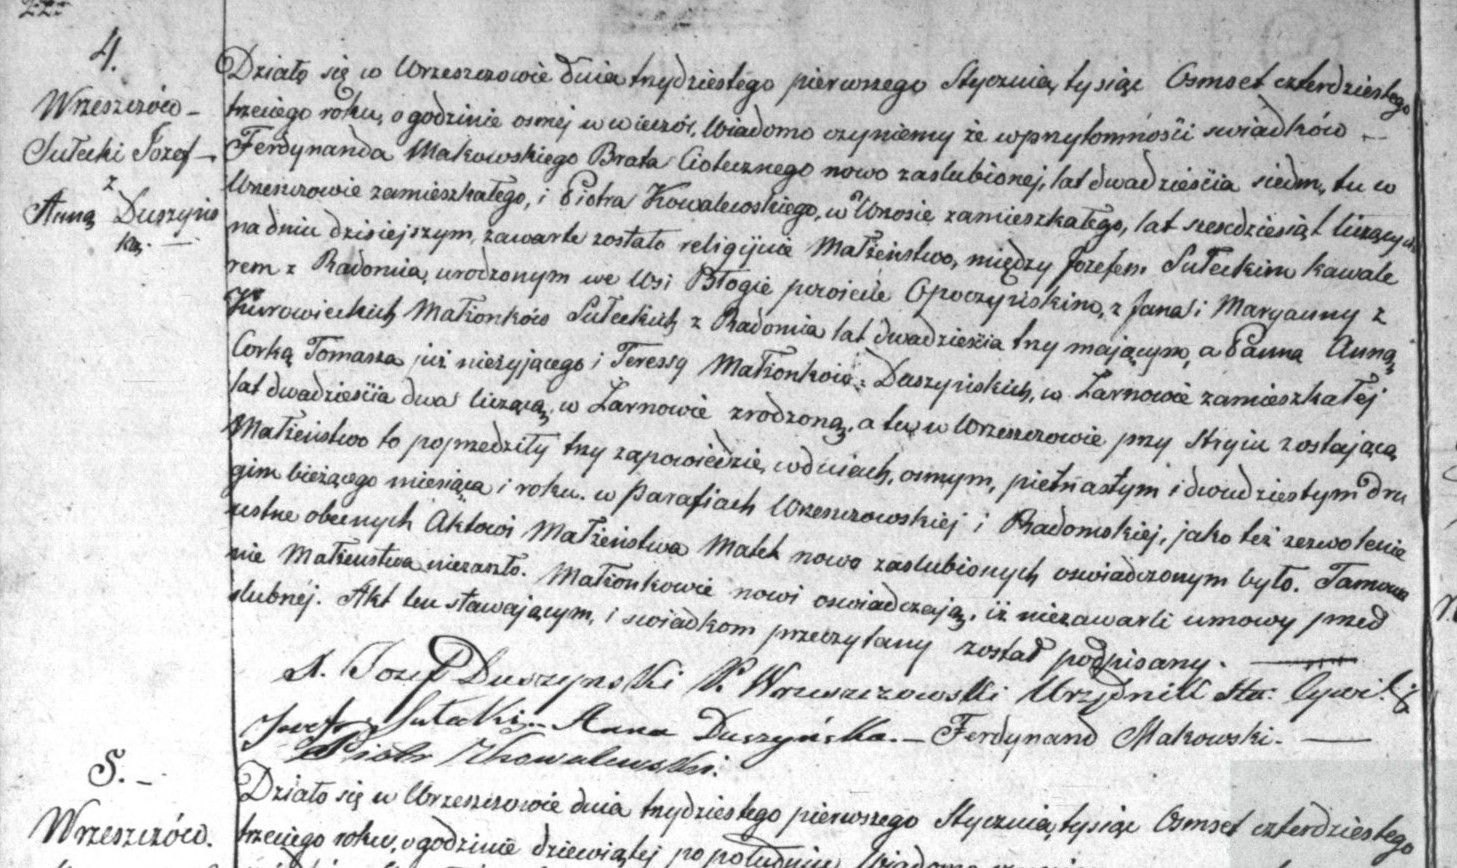 4.
Wrzeszczów –
Sułecki Józef –
z
Anną Duszyńs
ką. —
Działo się w Wrzeszczowie dnia trzydziestego pierwszego Stycznia tysiąc Osmset czterdziestego
trzeciego roku, o godzinie osmej w wieczór, Wiadomo czyniemy że w przytomności swiadków –
Ferdynanda Makowskiego Brata Ciotecznego nowo zaslubionej, lat dwadzieścia siedm, tu w
Wrzeszczowie zamieszkałego, i Piotra Kowalewskiego, w Wrosie zamieszkałego, lat szesdziesiąt liczących
na dniu dzisiejszym, zawarte zostało religijne Małżeństwo, między Jozefem Sułeckim kawale
rem z Radomia, urodzonym we Wsi Błogie powiecie Opoczyńskim, z Jana i Maryanny z
Kurowieckich Małżonków Sułeckich z Radomia lat dwadzieścia trzy mającym, a Panną Anną
Corką Tomasza już nieżyjącego i Teressy Małżonków Duszyńskich, w Żarnowie zamieszkałej
lat dwadzieścia dwa liczącą, w Żarnowie zrodzoną, a tu w Wrzeszczowie przy Stryiu zostającą
Małżeństwo to poprzedziły trzy zapowiedzie, w dniach, osmym, piętnastym i dwudziestym dru
gim bieżącego miesiąca i roku. w Parafiach Wrzeszczowskiej i Radomskiej, jako też zezwolenie
ustne obecnych Aktowi Małżeństwa Matek nowo zaslubionych oswiadczonym było. Tamowa
nie Małżeństwa niezaszło. Małżonkowie nowi oswiadczają, iż niezawarli umowy przed
slubnej. Akt ten stawającym, i swiadkom przeczytany został podpisany. —
X. Jozef Duszynski P. Wrzeszczowski Urzędnik Sta: Cywil.
Jozef Sułecki – Anna Duszyńska. – Ferdynand Makowski. —
Piotr Kowalewski.
5. –
Wrzeszczów.
Działo się w Wrzeszczowie dnia trzydziestego pierwszego Stycznia, tysiąc Osmset czterdziestego
trzeciego roku, o godzinie dziewiątej po południu Wiadomo